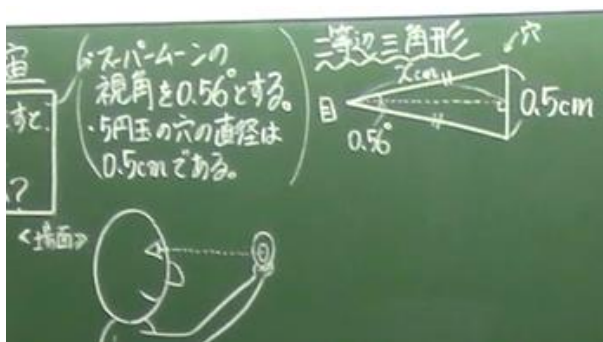 宙
すと、
?
・スーパームーンの
視角を0.56°とする。
・5円玉の穴の直径は
0.5cmである。
二等辺三角形
穴
xcm
目
0.5cm
0.56°
<場面>